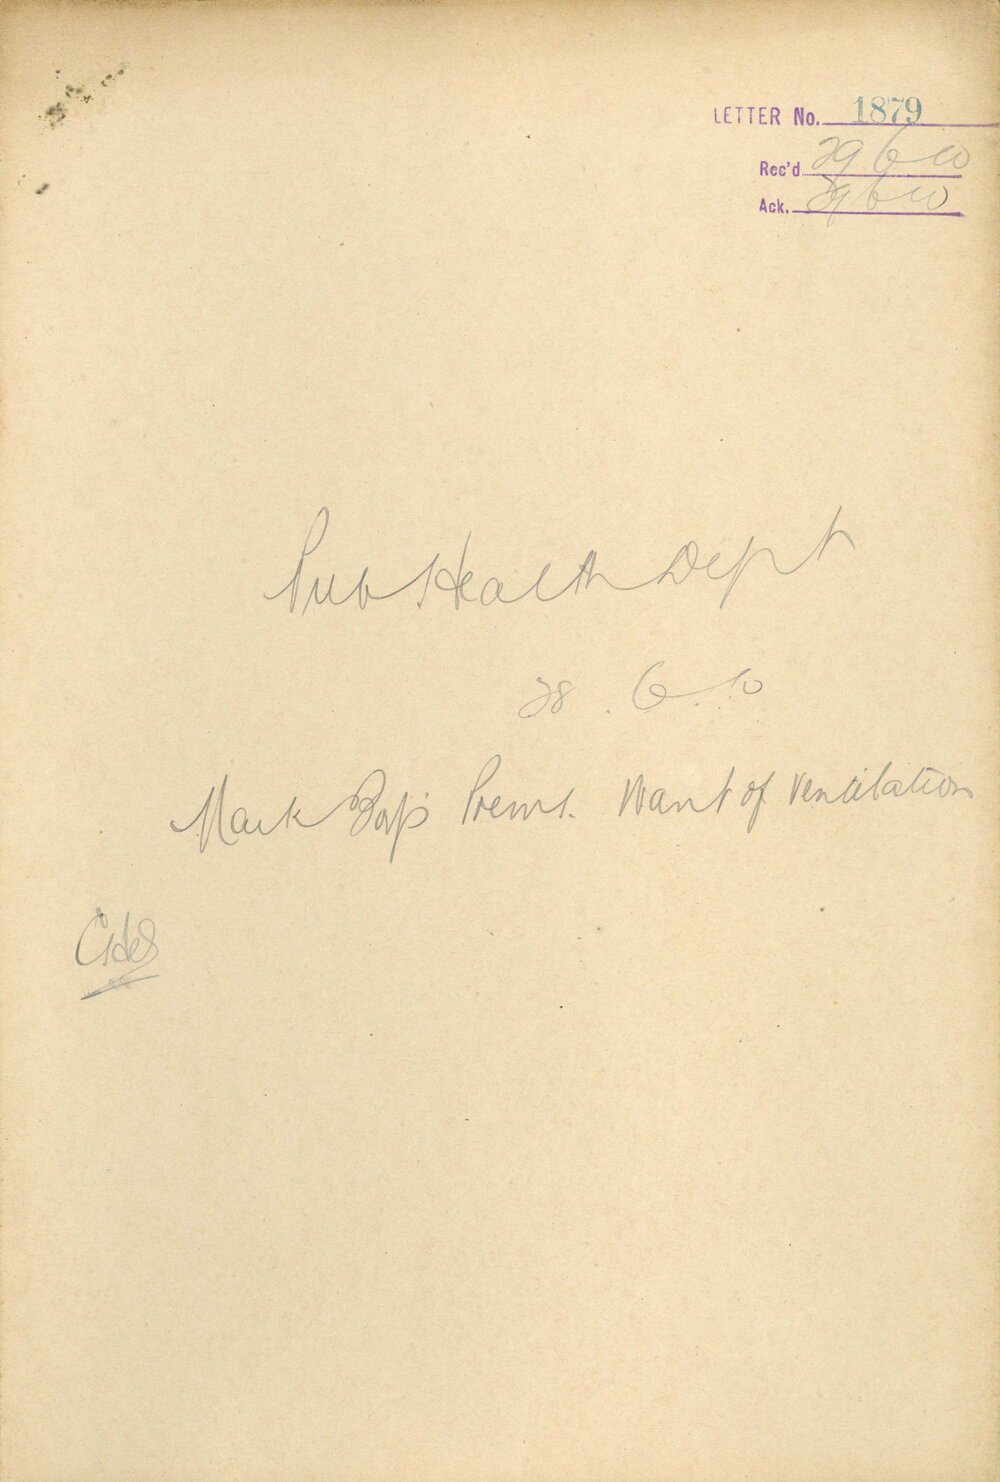 LETTER No. 1879
Rec'd 29 6 10
Ack. 29 6 10
Pub Health Dept
28.6.10
Mark Prems. Want of Ventilation